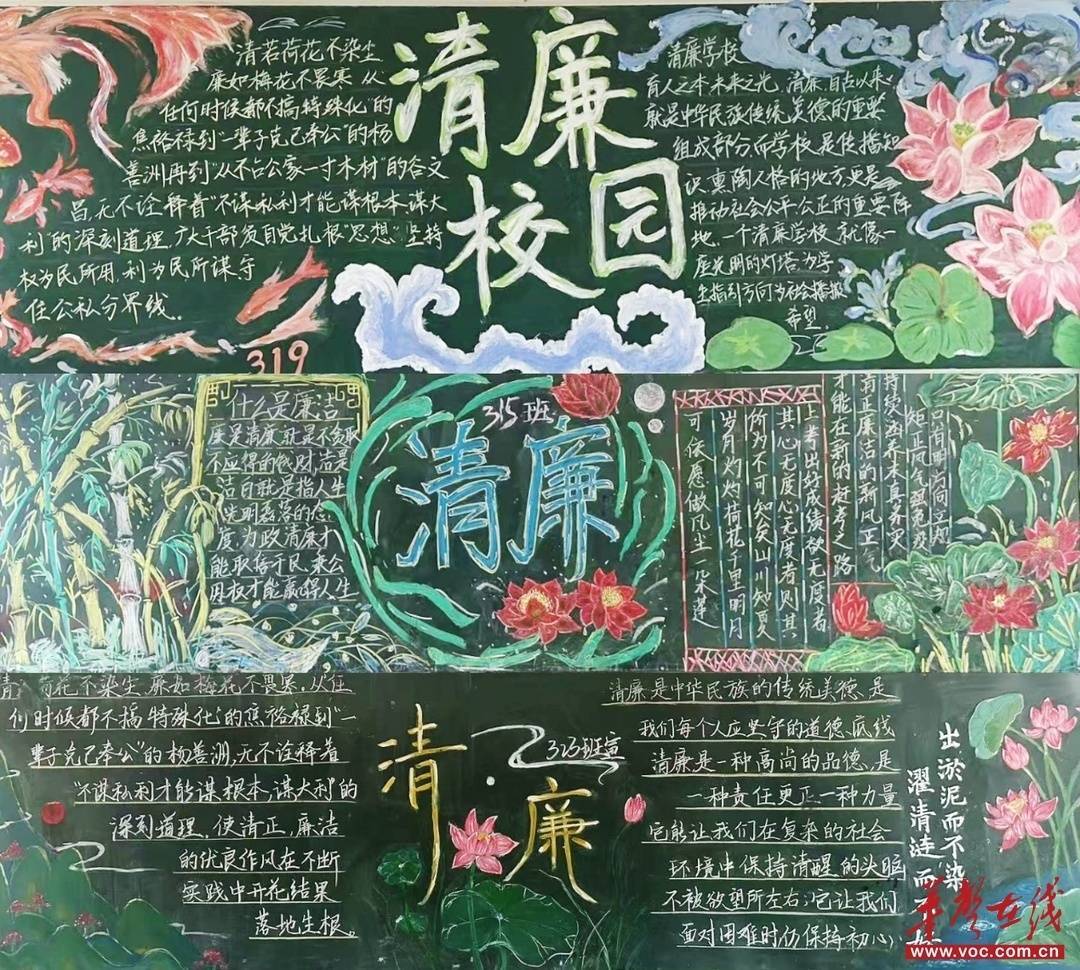 清若荷花不染尘
廉如梅花不畏寒 从
任何时候都不搞特殊化"的
焦裕禄到"一辈子克己奉公"的杨
善洲再到"从不占公家一寸木材"的谷文
昌,无不诠释着"不谋私利才能谋根本、谋大
利"的深刻道理,广大干部
扎根"思想" 坚持
权为民所用,利为民所谋,守
住公私分界线。
319
清廉
校园
清廉学校
育人之本未来之光,清廉,自古以来
就是中华民族传统美德的重要
组成部分,而学校是传播知
识,熏陶人格的地方,更是
推动社会公平公正的重要阵
地,一个清廉学校,就像一
座光明的灯塔,为学
生指引方向,为社会播撒
希望。
什么是廉洁
廉是清廉,就是不贪取
不应得的钱财,洁是
洁白就是指人生
光明磊落的态
度,为政清廉才
能取信于民,秉公
用权才能赢得人生
315班
清廉
上考出好成绩欲无度者
其心无度心无度者则其
所为不可知矣山川知夏
岁月灼灼荷花千里明月
可依愿做凡尘一朵莲
矩正风气
持续涵养
清正廉洁的新风正气
才能在新的赶考之路
荷花不染尘,廉如梅花不畏寒,从任
何时候都不搞特殊化"的焦裕禄到"一
辈子克己奉公"的杨善洲,无不诠释着
"不谋私利才能谋根本,谋大利"的
深刻道理,使清正,廉洁
的优良作风在不断
实践中开花结果
落地生根。
清·廉
323班宣
清廉是中华民族的传统美德,是
我们每个人应坚守的道德底线
清廉是一种高尚的品德,是
一种责任更正一种力量
它能让我们在复杂的社会
环境中保持清醒的头脑
不被欲望所左右;它让我们
面对困难时仍保持初心,
出淤泥而不染
濯清涟而
华声在线
www.voc.com.cn